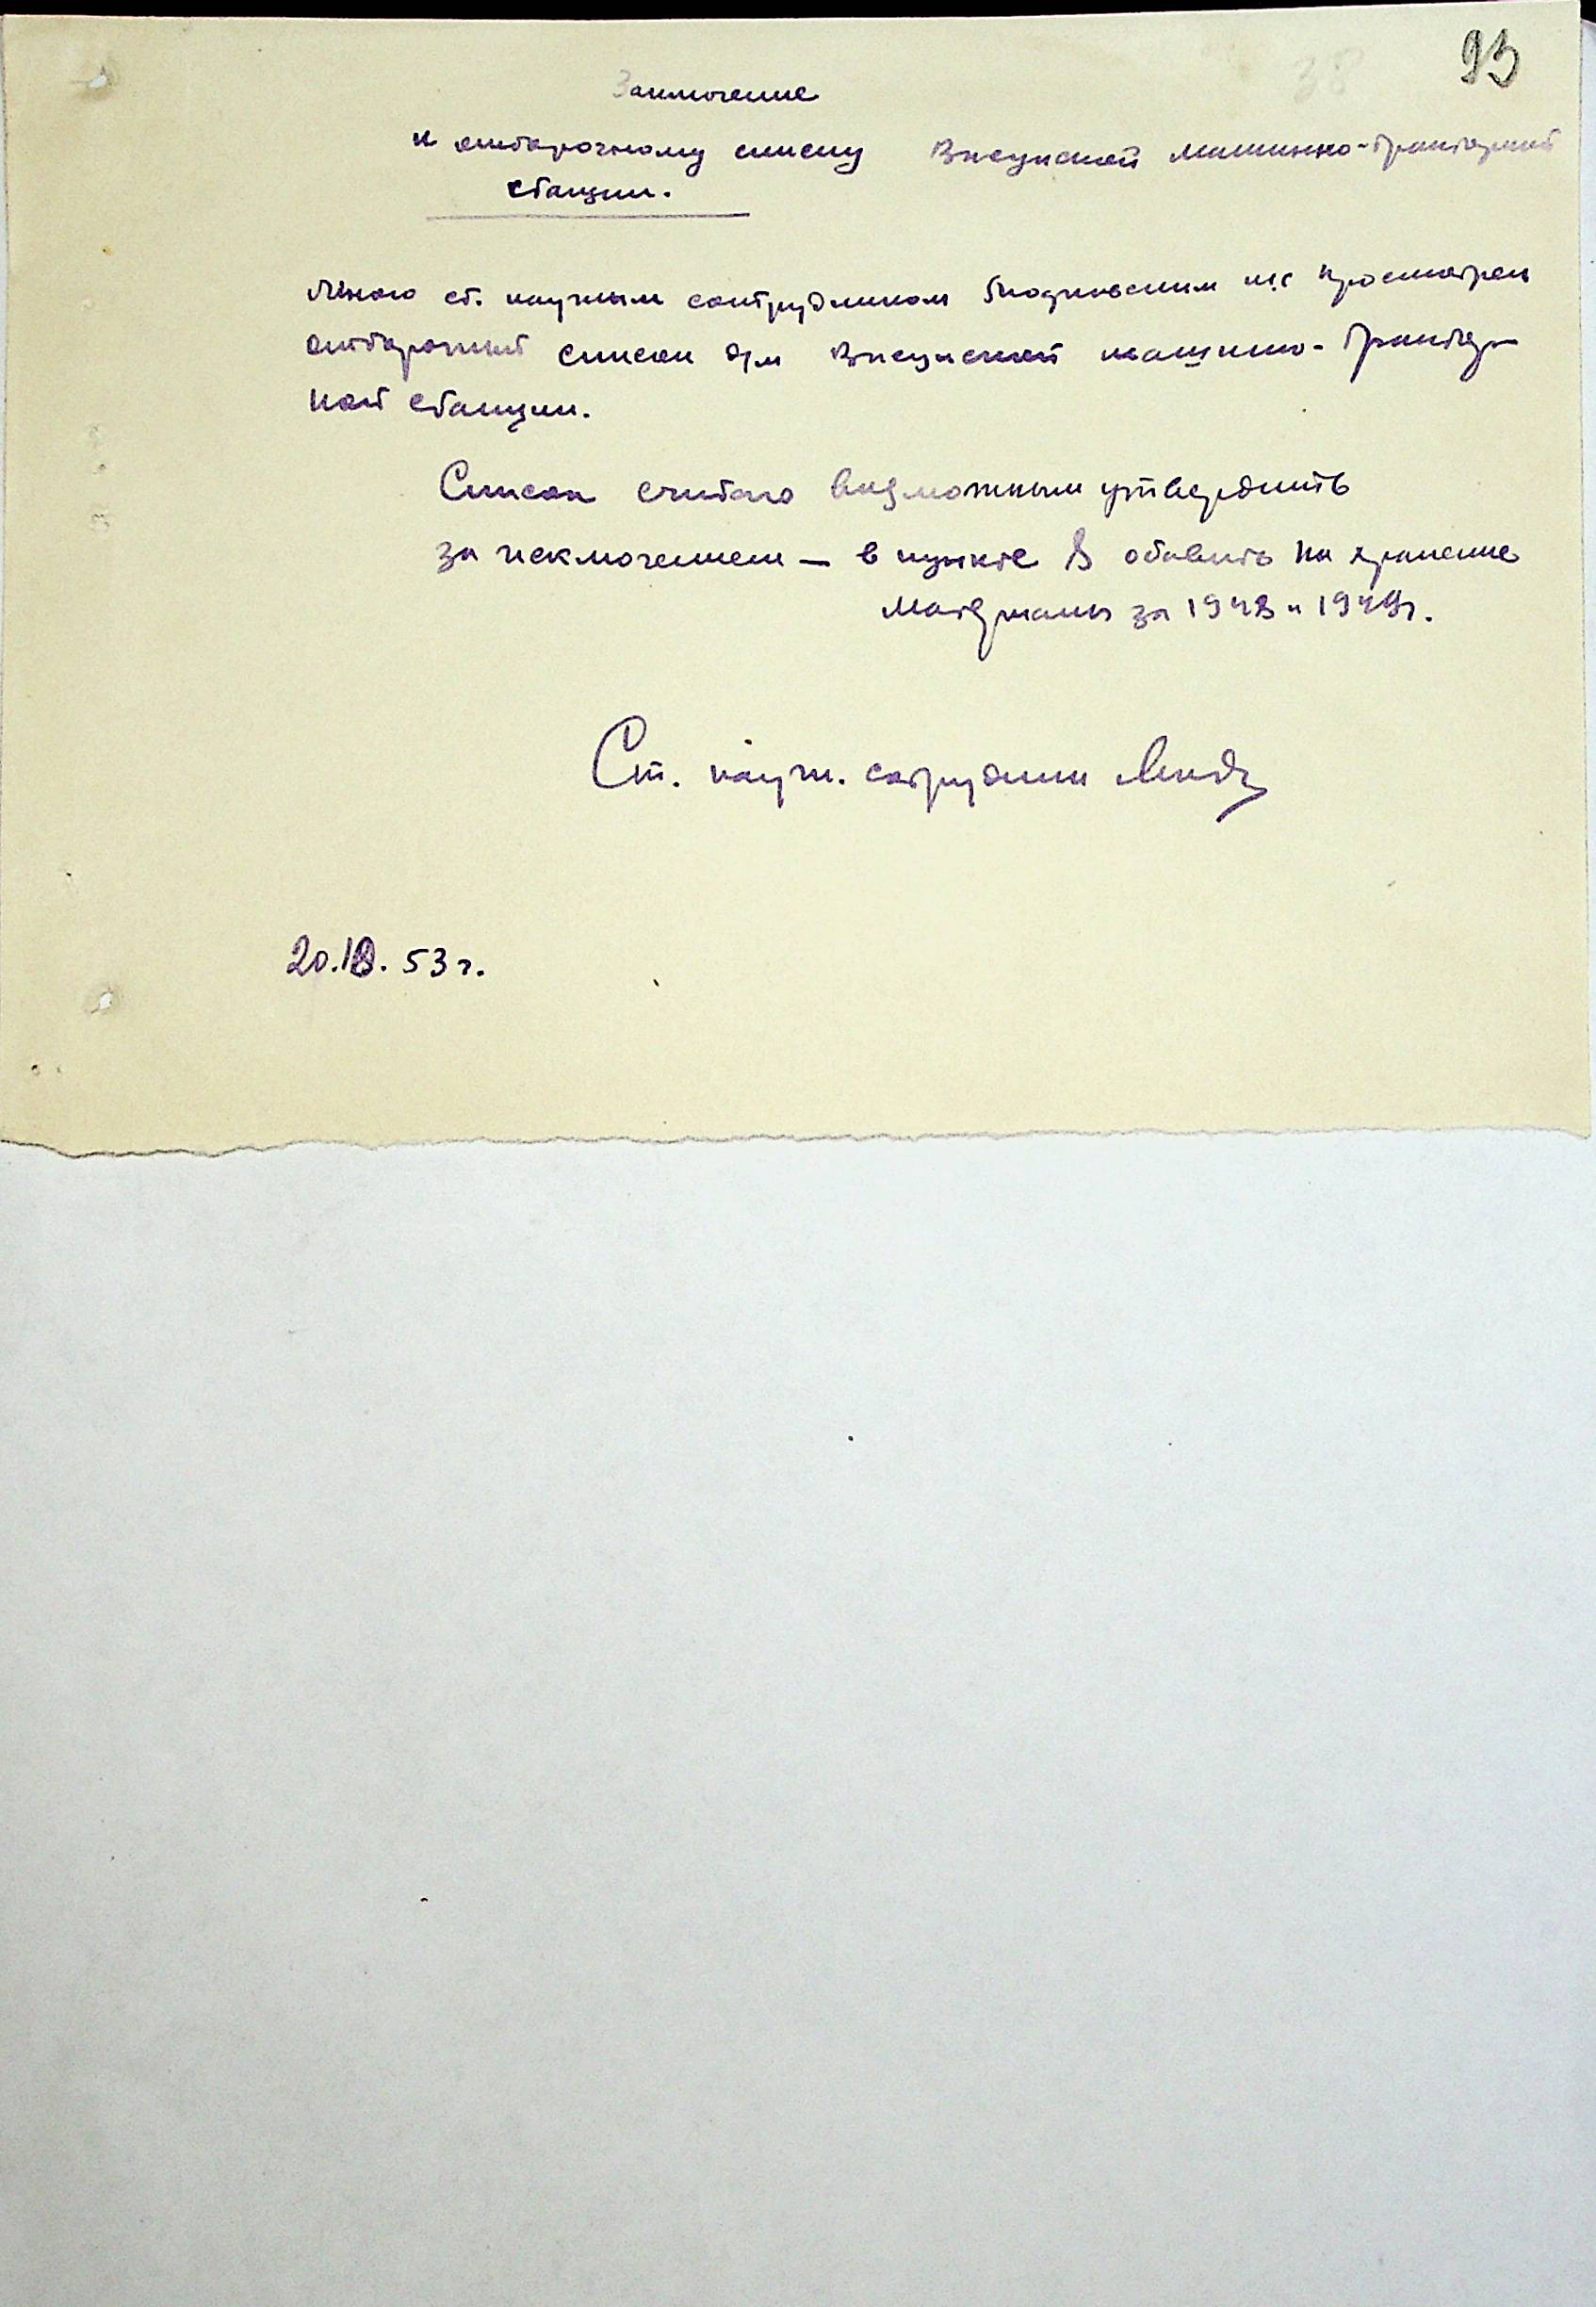 93
Заключение
к отборочному списку Висунской машинно-тракторной
станции.
Мною ст. научным сотрудником просмотрен
отборочный список для Висунской машинно-трактор-
ной станции.
Список считаю возможным утвердить
за исключением — в пункте 8 оставить на хранение
материалы за 1948 и 1949г.
Ст. научн. сотрудник
53 г.